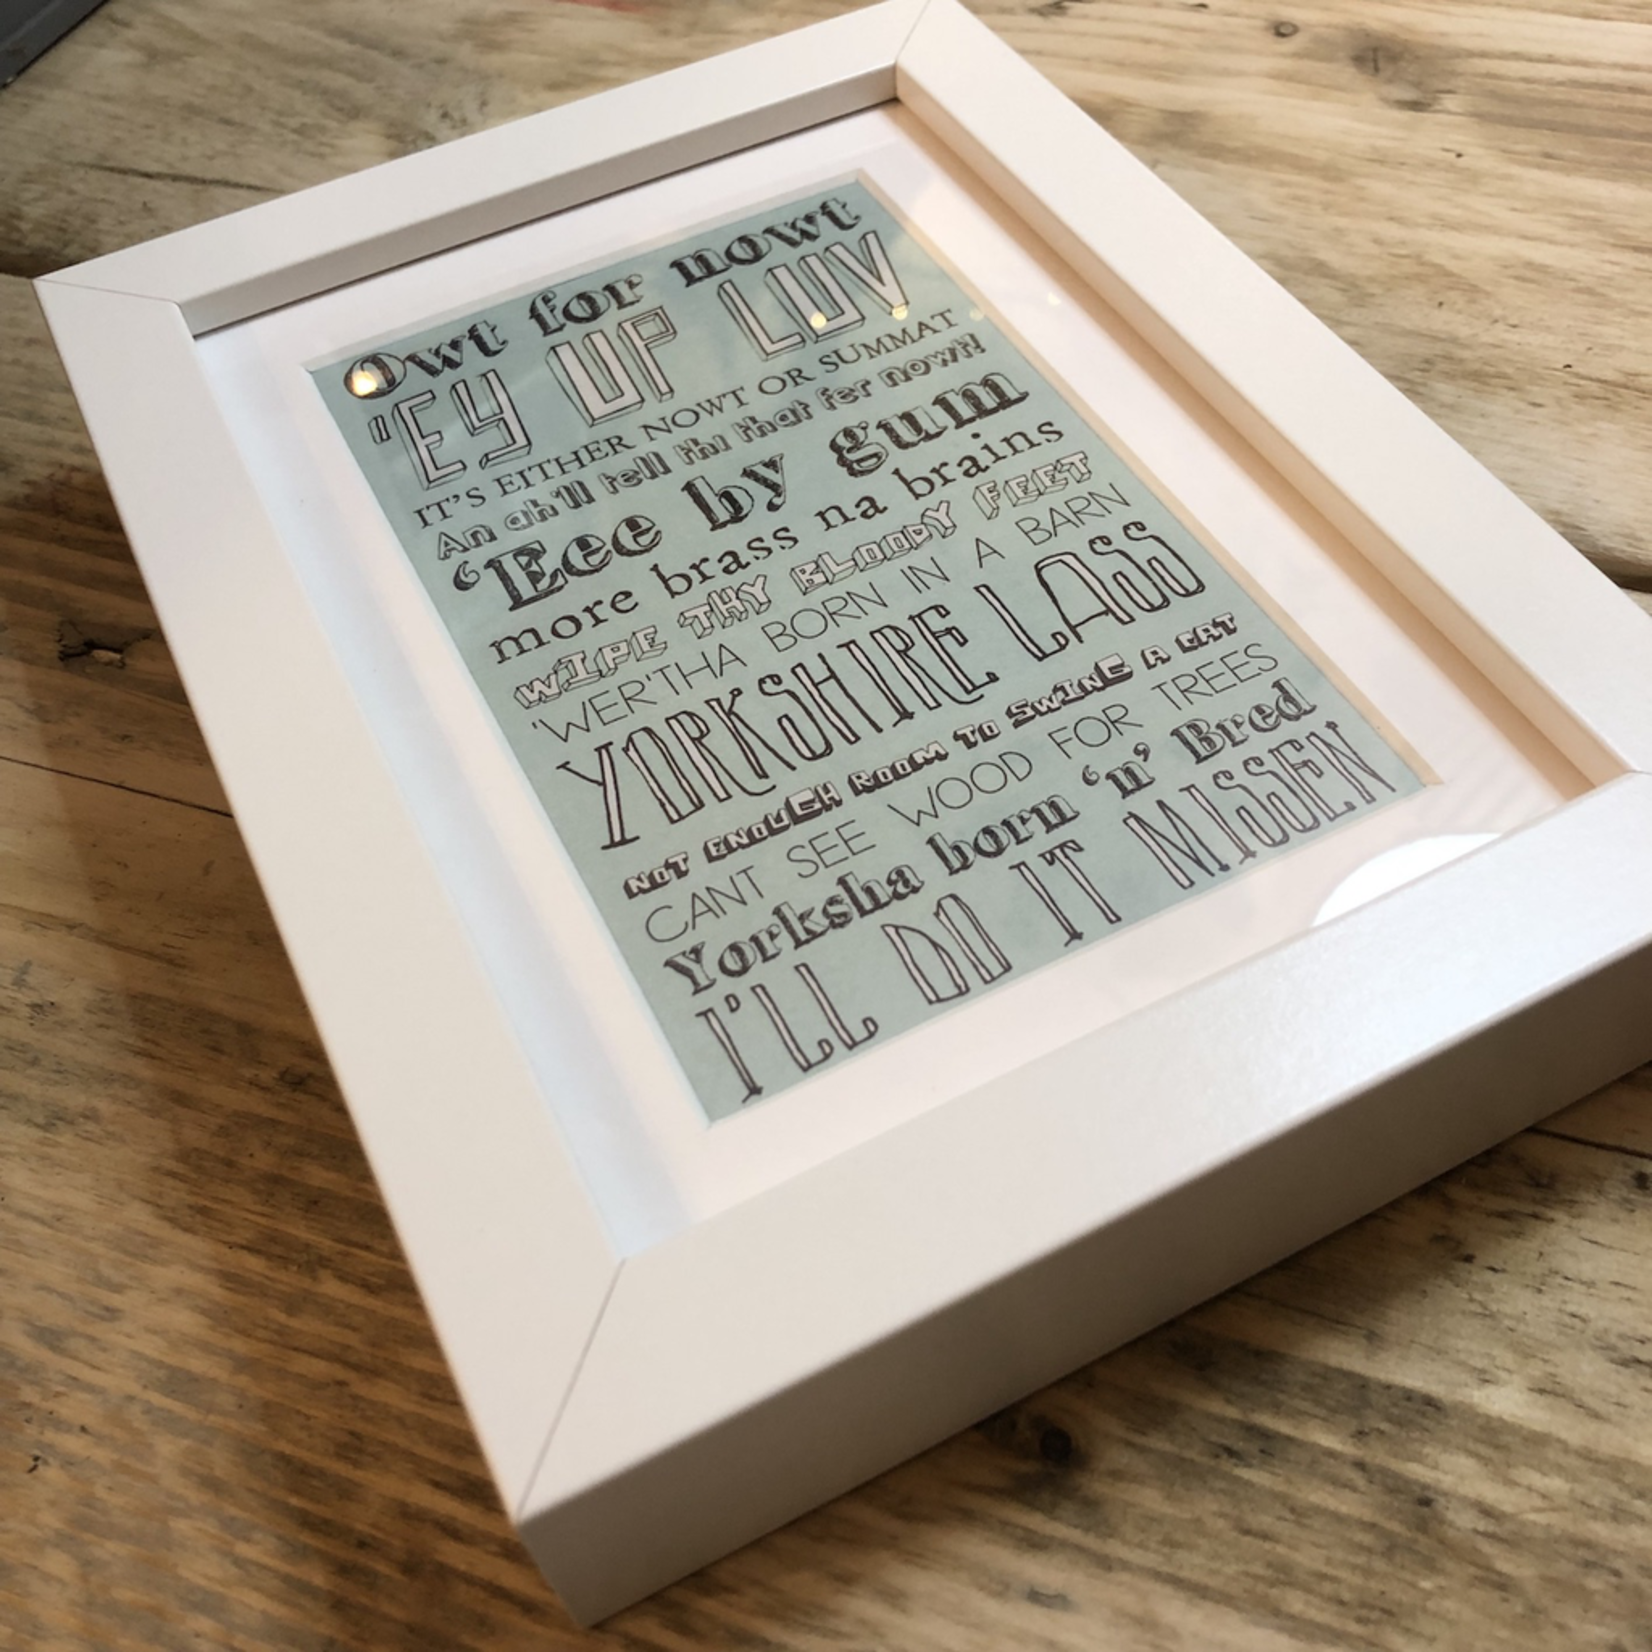 Owt for nowt
"EY UP LUV
IT'S EITHER NOWT OR SUMMAT
An ah'll tell thi that fer nowt!
'Eee by gum
more brass na brains
WIPE THY BLOODY FEET
'WER'THA BORN IN A BARN
YORKSHIRE LASS
NOT ENOUGH ROOM TO SWING A CAT
CANT SEE WOOD FOR TREES
Yorksha born 'n' Bred
I'LL DO IT MISSEN